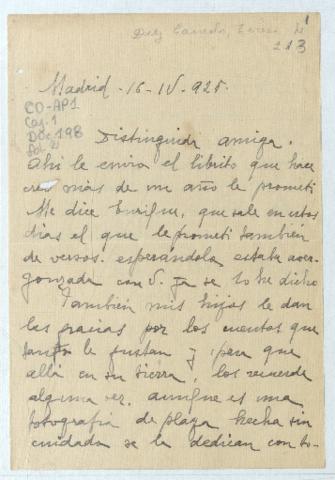 Diez Canedo, Teresa
1
213
Madrid - 16-IV-925.
CO-AP1
Caj. 1
Doc 198
fol. 21
Distinguida amiga.
Ahí le envio el librito que hace
creo más de un año le prometí
Me dice Enrique, que sale en estos
dias el que le prometí tambien
de versos. esperándola estaba aver-
gonzada con V. ya se lo he dicho
Tambien mis hijos le dan
las gracias por los cuentos que
tanto le gustan y para que
allá en su tierra, los recuerde
alguna vez. aunque es una
fotografia de playa hecha sin
cuidado se la dedican con to-